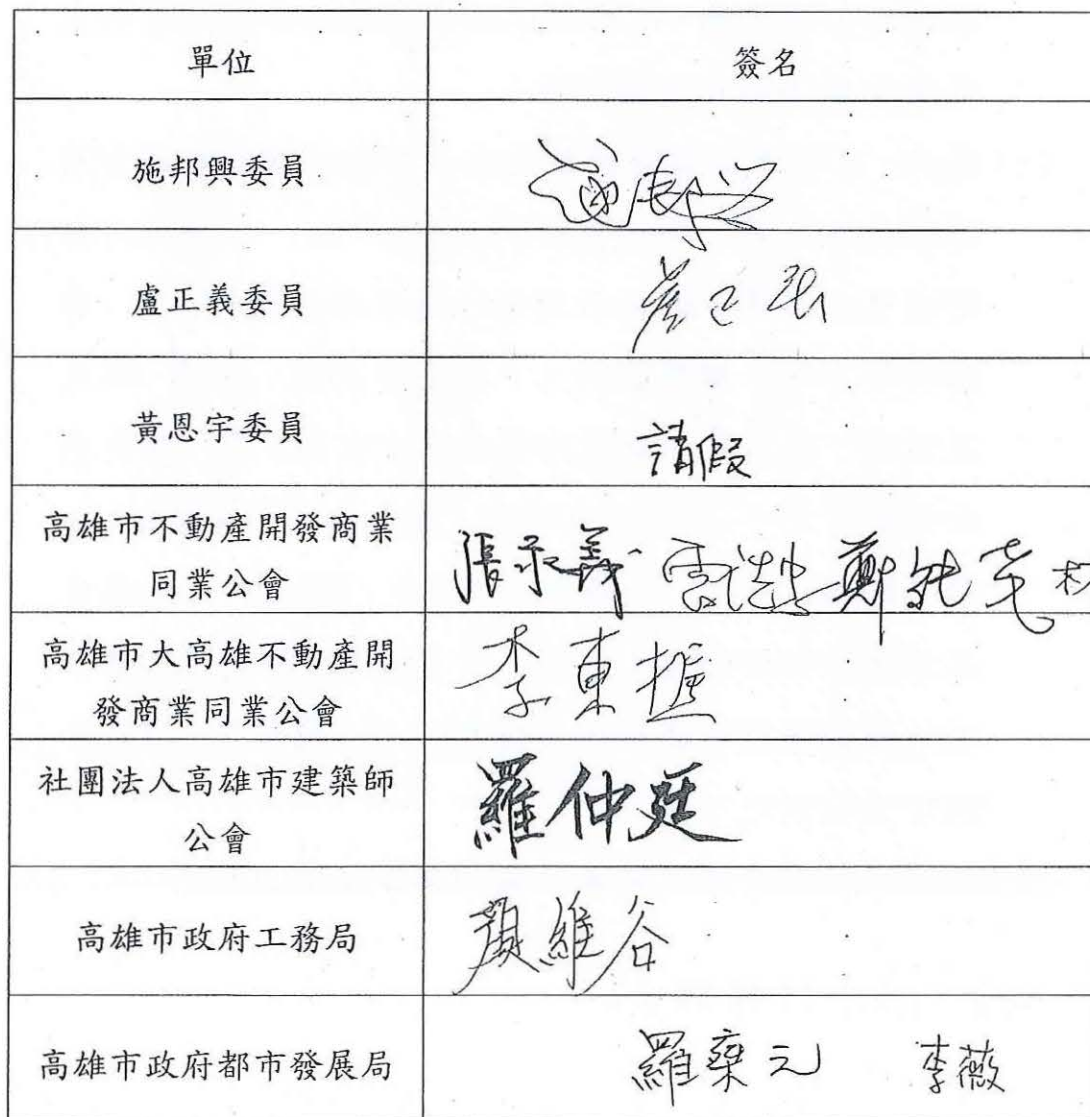 單位 簽名
施邦興委員
盧正義委員
黃恩宇委員 請假
高雄市不動產開發商業
同業公會
張永義
高雄市大高雄不動產開
發商業同業公會
李東
社團法人高雄市建築師
公會
羅仲廷
高雄市政府工務局 維谷
高雄市政府都市發展局 羅 元 李薇